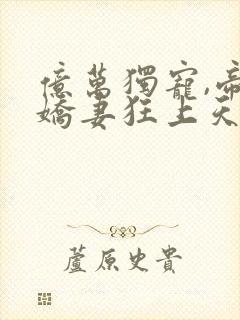 億萬獨寵,帝
嬌妻狂上天
蘆原史貴